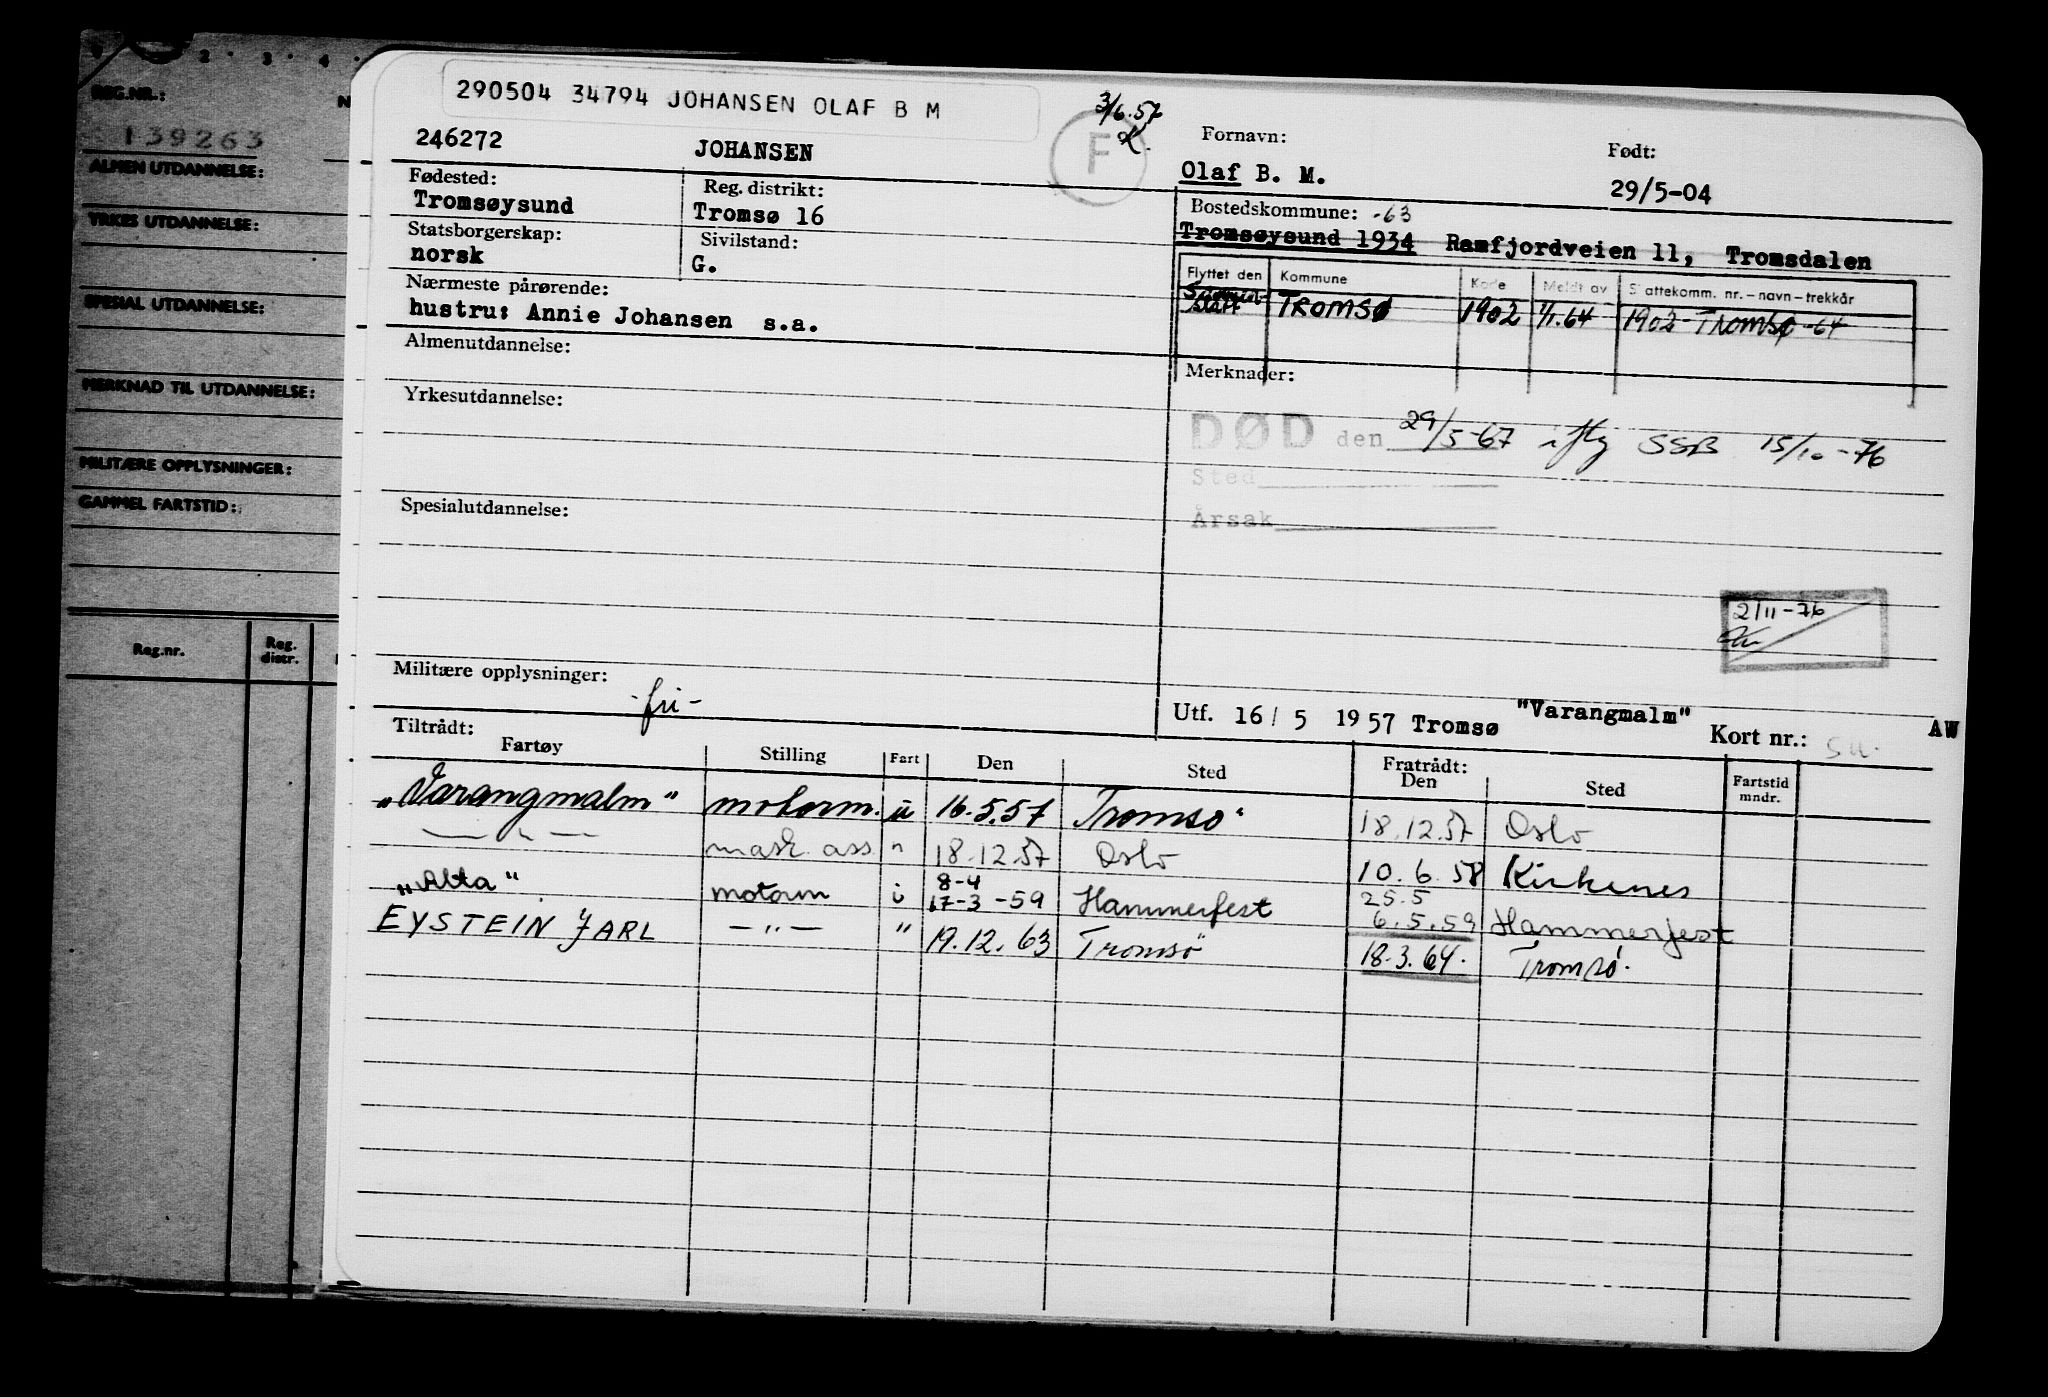 1 2 · 3 · 4 ·
REG.NR.: N
139263
ALMEN UTDANNELSE:
YRKES UTDANNELSE:
SPESIAL UTDANNELSE:
MERKNAD TIL UTDANNELSE:
MILITÆRE OPPLYSNINGER:
GAMMEL FARTSTID:
Reg.nr. Reg. distr.
290504 34794 JOHANSEN OLAF B M
3/6.57
F
246272 JOHANSEN
Fornavn: Født:
Olaf B. M. 29/5-04
Fødested: Reg. distrikt:
Tromsøysund Tromsø 16
Bostedskommune: -63
Tromsøysund 1934 Ramfjordveien 11, Tromsdalen
Statsborgerskap: Sivilstand:
norsk G.
Flyttet den Kommune Kode Meldt av Skattekomm. nr.—navn—trekkår
Tromsø 1902 1/1.64 1902 Tromsø -64
Nærmeste pårørende:
hustru: Annie Johansen s.a.
Almenutdannelse:
Merknader:
Yrkesutdannelse:
DØD den 29/5-67 iflg SSB 15/10-76
Sted
Årsak
Spesialutdannelse:
2/11-76
Militære opplysninger:
-fri-
Utf. 16/ 5 1957 Tromsø "Varangmalm" Kort nr.: AW
Tiltrådt: Fratrådt:
Fartøy Stilling Fart Den Sted Den Sted Fartstid mndr.
"Varangmalm" motorm. u 16.5.57 Tromsø 18.12.57 Oslo
—"— mask. ass " 18.12.57 Oslo 10.6.58 Kirkenes
8-4 25.5
"Alta" motorm i 17-3-59 Hammerfest 6.5.59 Hammerfest
EYSTEIN JARL —"— " 19.12.63 Tromsø 18.3.64. Tromsø.